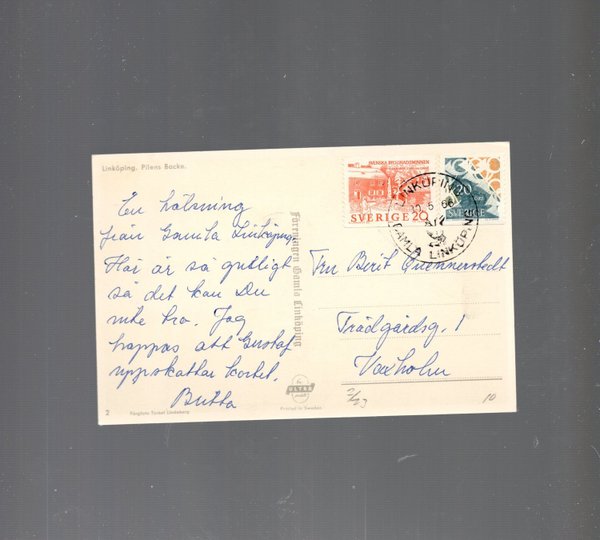 Linköping. Pilens Backe.
En hälsning
från Gamla Linköping.
Här är så gulligt
så det kan Du
inte tro. Jag
hoppas att Gustaf
uppskattar kortet.
Britta
2
Färgfoto: Forset Lindeberg
Föreningen Gamla Linköping
ULTRA
Printed in Sweden
SVENSKA BYGGNADSMINNEN
SVERIGE 20
20
SVERIGE
LINKÖPING 20
12.6.66
GAMLA LINKÖPING
Fru Berit Quennerstedt
Trädgårdsg. 1
Vaxholm
10